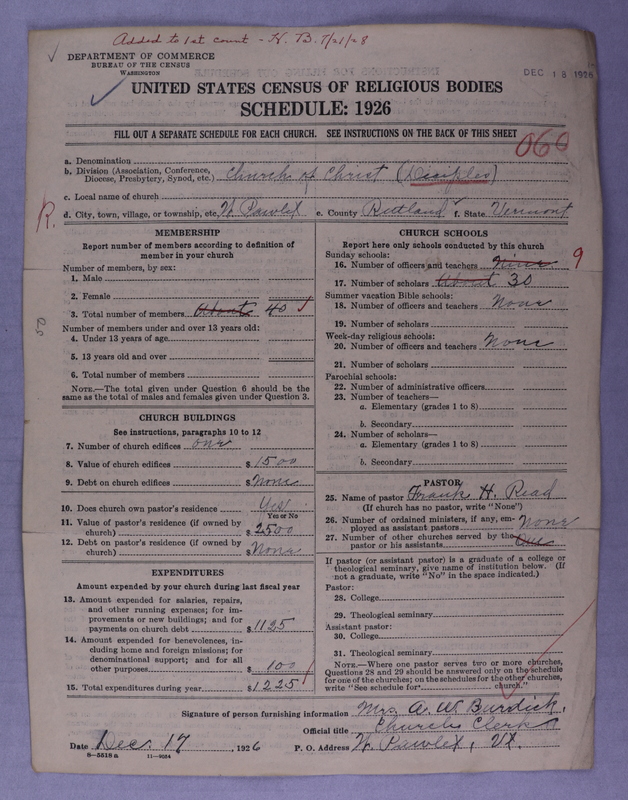 Added to 1st count - H. B. 7/21/28
DEPARTMENT OF COMMERCE
BUREAU OF THE CENSUS
WASHINGTON
DEC 18 1926
UNITED STATES CENSUS OF RELIGIOUS BODIES
SCHEDULE: 1926
FILL OUT A SEPARATE SCHEDULE FOR EACH CHURCH. SEE INSTRUCTIONS ON THE BACK OF THIS SHEET
060
a. Denomination
b. Division (Association, Conference, Diocese, Presbytery, Synod, etc.) Church of Christ (Disciples)
c. Local name of church
R.
d. City, town, village, or township, etc. W. Pawlet e. County Rutland f. State Vermont
MEMBERSHIP
Report number of members according to definition of member in your church
Number of members, by sex:
1. Male
2. Female
3. Total number of members About 40
Number of members under and over 13 years old:
50
4. Under 13 years of age
5. 13 years old and over
6. Total number of members
NOTE.—The total given under Question 6 should be the
same as the total of males and females given under Question 3.
CHURCH BUILDINGS
See instructions, paragraphs 10 to 12
7. Number of church edifices one
8. Value of church edifices $1500
9. Debt on church edifices $None
10. Does church own pastor's residence Yes
Yes or No
11. Value of pastor's residence (if owned by
church) $2500
12. Debt on pastor's residence (if owned by
church) $None
EXPENDITURES
Amount expended by your church during last fiscal year
13. Amount expended for salaries, repairs,
and other running expenses; for im-
provements or new buildings; and for
payments on church debt $1125
14. Amount expended for benevolences, in-
cluding home and foreign missions; for
denominational support; and for all
other purposes $100
15. Total expenditures during year $1225
CHURCH SCHOOLS
Report here only schools conducted by this church
Sunday schools:
16. Number of officers and teachers Nine 9
17. Number of scholars About 30
Summer vacation Bible schools:
18. Number of officers and teachers None
19. Number of scholars
Week-day religious schools:
20. Number of officers and teachers None
21. Number of scholars
Parochial schools:
22. Number of administrative officers
23. Number of teachers—
a. Elementary (grades 1 to 8)
b. Secondary
24. Number of scholars—
a. Elementary (grades 1 to 8)
b. Secondary
PASTOR
25. Name of pastor Frank H. Read
(If church has no pastor, write "None")
26. Number of ordained ministers, if any, em-
ployed as assistant pastors None
27. Number of other churches served by the
pastor or his assistants One
If pastor (or assistant pastor) is a graduate of a college or
theological seminary, give name of institution below. (If
not a graduate, write "No" in the space indicated.)
Pastor:
28. College
29. Theological seminary
Assistant pastor:
30. College
31. Theological seminary
NOTE.—Where one pastor serves two or more churches,
Questions 28 and 29 should be answered only on the schedule
for one of the churches; on the schedules for the other churches,
write "See schedule for church."
Signature of person furnishing information Mrs. A. W. Burdick,
Official title Church Clerk
Date Dec. 17, 1926 P. O. Address W. Pawlet, Vt.
8—5518 a 11—9554